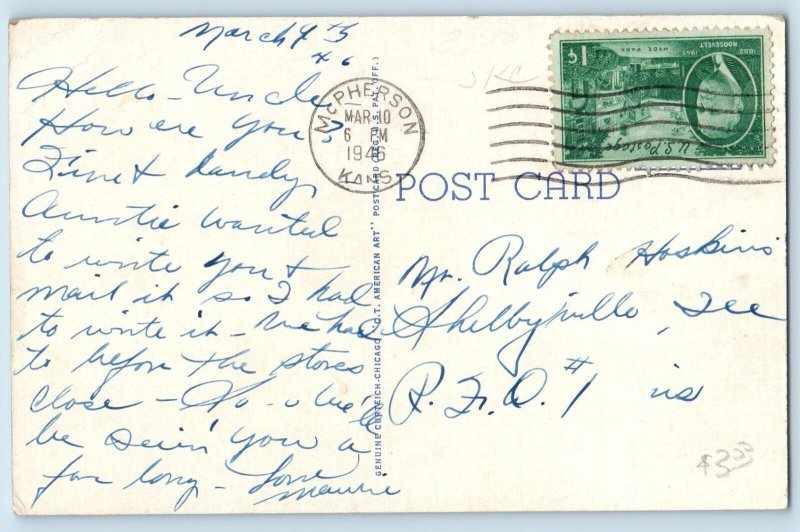 March 9th
46
Hello Uncle,
How are you?
Fine & dandy,
Auntie wanted
to write you &
mail it so I had
to write it - We had
to before the stores
close - So - we'll
be seein' you a
for long - Love
Maurie
McPHERSON
MAR 10
6 PM
1946
KANS
POST CARD
GENUINE CURTEICH-CHICAGO "C.T. AMERICAN ART" POST CARD (REG. U.S. PAT. OFF.)
1¢
HYDE PARK
1882 1945
ROOSEVELT
U.S. Postage
Mr. Ralph Hoskins
Shelbyville, Ill
R.F.D. #1
$3.50